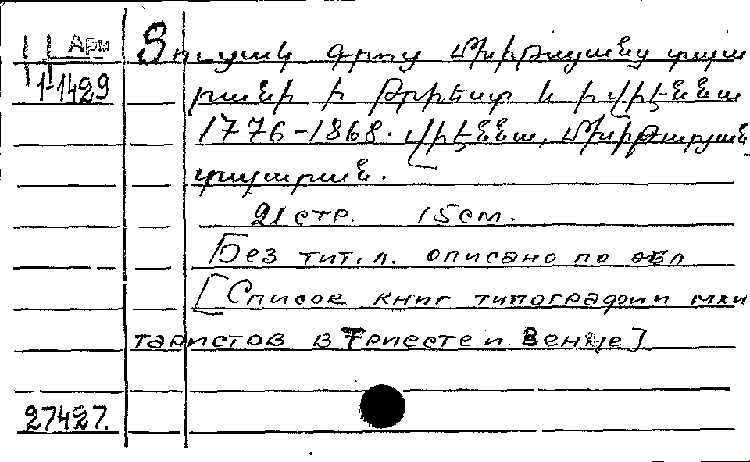 Арм
1-1429
Ցուցակ գրոց Մխիթարյանց տպա
րանի ի Թրիեստ և ի Վիէննա
1776-1868. Վիէննա, Մխիթարյան
տպարան.
21 стр. 15 см.
[Без тит. л. описано по обл
[Список книг типографии мхи
таристов в Триесте и Венце]
27427.